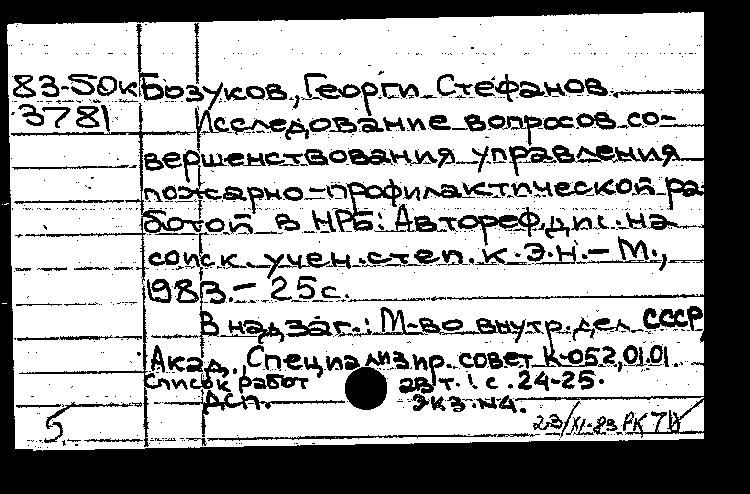 83-50к Бозуков, Георги Стефанов.
3781 Исследование вопросов со-
вершенствования управления
пожарно-профилактической ра-
ботой в НРБ: Автореф.дис.на
соиск.учен.степ.к.э.н.-М.,
1983.- 25с.
В надзаг.: М-во внутр.дел СССР,
Акад., Специализир.совет К-052,01.01.
Список работ авт.: с.24-25.
ДСП. Экз.№4.
5 23/XI-83 РК